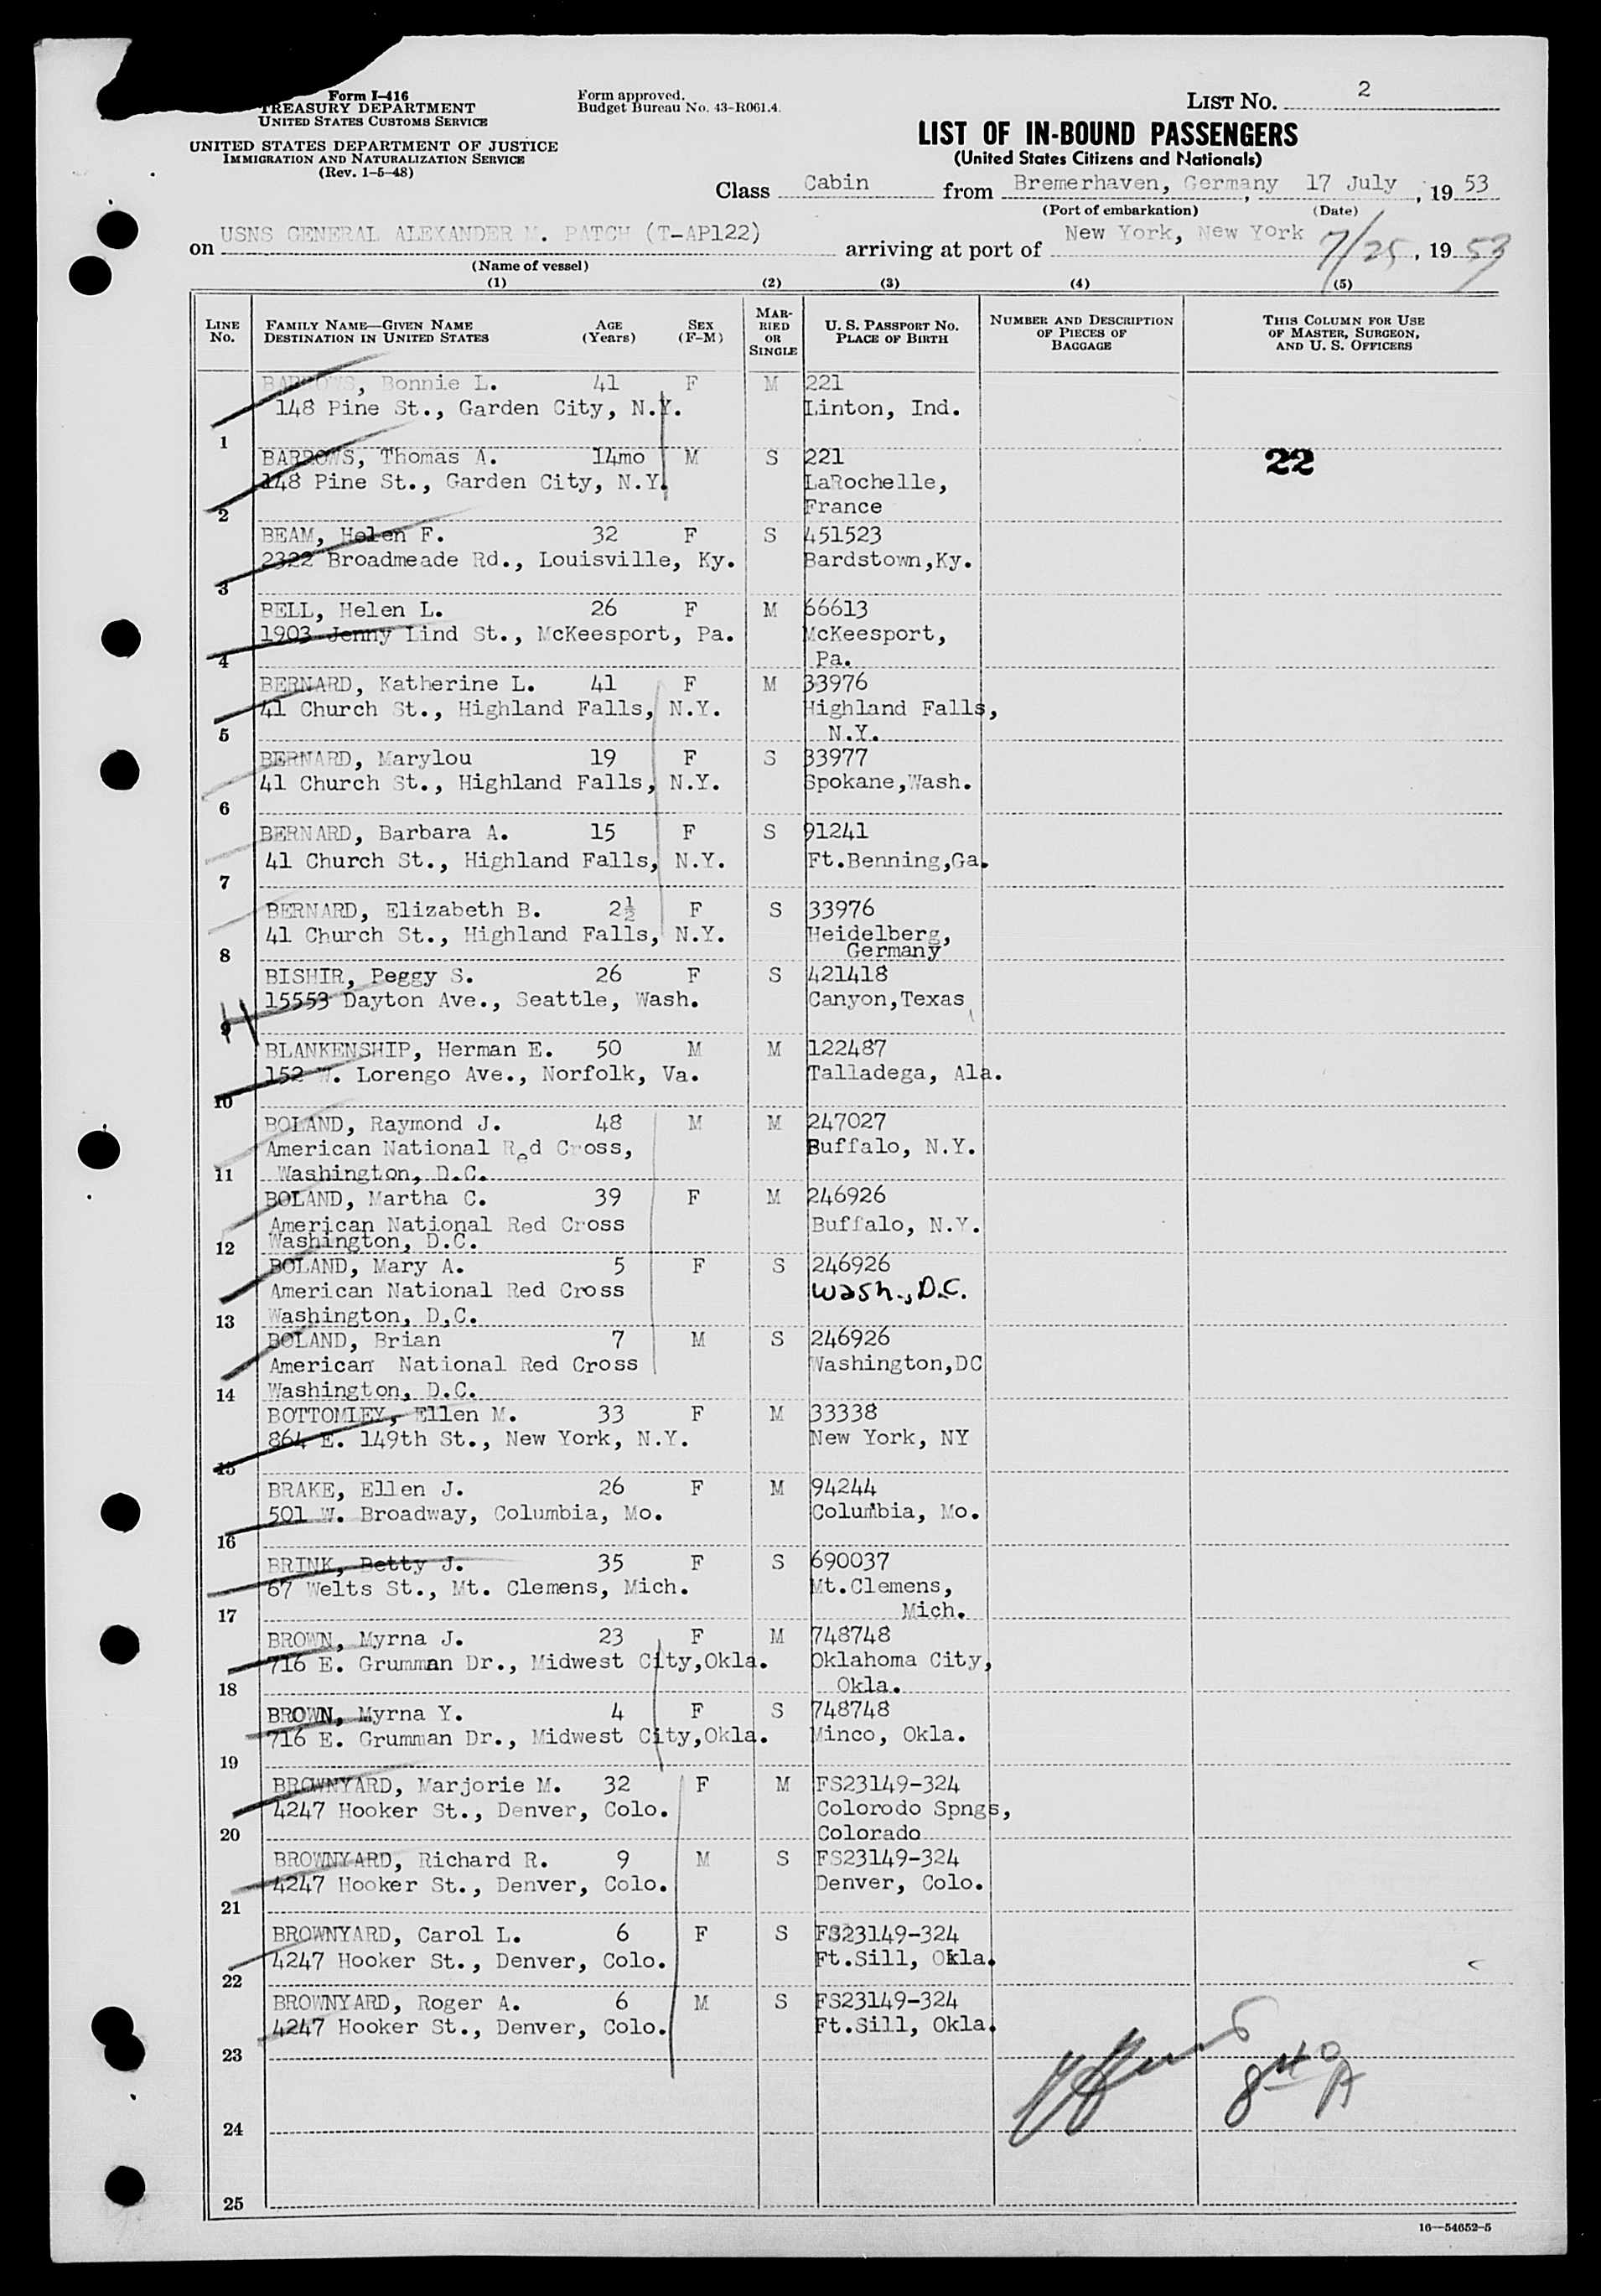 Form I-416
TREASURY DEPARTMENT
UNITED STATES CUSTOMS SERVICE
UNITED STATES DEPARTMENT OF JUSTICE
IMMIGRATION AND NATURALIZATION SERVICE
(Rev. 1-5-48)
Form approved.
Budget Bureau No. 43-R061.4.
LIST No. 2
LIST OF IN-BOUND PASSENGERS
(United States Citizens and Nationals)
Class Cabin from Bremerhaven, Germany, 17 July, 19 53
(Port of embarkation) (Date)
on USNS GENERAL ALEXANDER M. PATCH (T-AP122) arriving at port of New York, New York 7/25, 19 53
(Name of vessel)
(1) (2) (3) (4) (5)
LINE No. FAMILY NAME—GIVEN NAME DESTINATION IN UNITED STATES AGE (Years) SEX (F-M) MARRIED OR SINGLE U. S. PASSPORT No. PLACE OF BIRTH NUMBER AND DESCRIPTION OF PIECES OF BAGGAGE THIS COLUMN FOR USE OF MASTER, SURGEON, AND U. S. OFFICERS
BARROWS, Bonnie L. 41 F M 221
148 Pine St., Garden City, N.Y. Linton, Ind.
1
BARROWS, Thomas A. 14mo M S 221 22
148 Pine St., Garden City, N.Y. LaRochelle,
2 France
BEAM, Helen F. 32 F S 451523
2322 Broadmeade Rd., Louisville, Ky. Bardstown,Ky.
3
BELL, Helen L. 26 F M 66613
1903 Jenny Lind St., McKeesport, Pa. McKeesport,
4 Pa.
BERNARD, Katherine L. 41 F M 33976
41 Church St., Highland Falls, N.Y. Highland Falls,
5 N.Y.
BERNARD, Marylou 19 F S 33977
41 Church St., Highland Falls, N.Y. Spokane,Wash.
6
BERNARD, Barbara A. 15 F S 91241
41 Church St., Highland Falls, N.Y. Ft.Benning,Ga.
7
BERNARD, Elizabeth B. 2½ F S 33976
41 Church St., Highland Falls, N.Y. Heidelberg,
8 Germany
BISHIR, Peggy S. 26 F S 421418
15553 Dayton Ave., Seattle, Wash. Canyon,Texas
9
BLANKENSHIP, Herman E. 50 M M 122487
152 W. Lorengo Ave., Norfolk, Va. Talladega, Ala.
10
BOLAND, Raymond J. 48 M M 247027
American National Red Cross, Buffalo, N.Y.
11 Washington, D.C.
BOLAND, Martha C. 39 F M 246926
American National Red Cross Buffalo, N.Y.
12 Washington, D.C.
BOLAND, Mary A. 5 F S 246926
American National Red Cross Wash., D.C.
13 Washington, D,C.
BOLAND, Brian 7 M S 246926
American National Red Cross Washington,DC
14 Washington, D.C.
BOTTOMLEY, Ellen M. 33 F M 33338
864 E. 149th St., New York, N.Y. New York, NY
15
BRAKE, Ellen J. 26 F M 94244
501 W. Broadway, Columbia, Mo. Columbia, Mo.
16
BRINK, Betty J. 35 F S 690037
67 Welts St., Mt. Clemens, Mich. Mt.Clemens,
17 Mich.
BROWN, Myrna J. 23 F M 748748
716 E. Grumman Dr., Midwest City,Okla. Oklahoma City,
18 Okla.
BROWN, Myrna Y. 4 F S 748748
716 E. Grumman Dr., Midwest City,Okla. Minco, Okla.
19
BROWNYARD, Marjorie M. 32 F M FS23149-324
4247 Hooker St., Denver, Colo. Colorodo Spngs,
20 Colorado
BROWNYARD, Richard R. 9 M S FS23149-324
4247 Hooker St., Denver, Colo. Denver, Colo.
21
BROWNYARD, Carol L. 6 F S FS23149-324
4247 Hooker St., Denver, Colo. Ft.Sill, Okla.
22
BROWNYARD, Roger A. 6 M S FS23149-324
4247 Hooker St., Denver, Colo. Ft.Sill, Okla.
23
24
25
16—54652-5